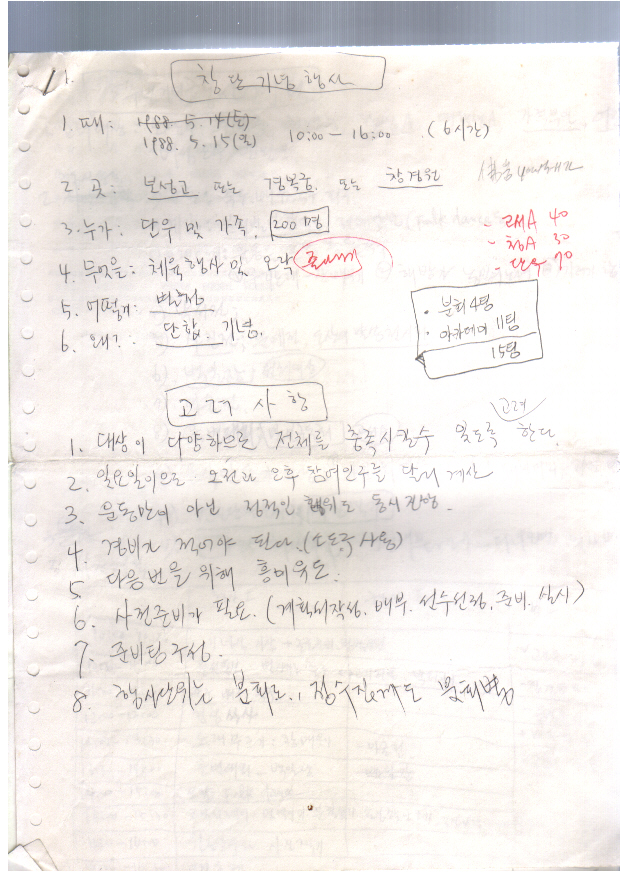 1.
창단기념행사
1. 때: 1988. 5. 14(토)
1988. 5. 15(일) 10:00 - 16:00 .(6시간)
2. 곳: 보성고 또는 경복궁. 또는 창경원
3. 누가: 단우 및 가족. 200명
- 고A 40
- 청A 30
- 단우 70
4. 무엇을: 체육행사 및 오락
5. 어떻게:
6. 왜?: 단합. 기념.
• 분회 4팀
• 아카데미 11팀
15팀
고려사항
고려
1. 대상이 다양하므로 전체를 충족시킬수 있도록 한다.
2. 일요일이므로 오전과 오후 참여인구를 달리 계산
3. 운동만이 아닌 정적인 행위도 동시진행.
4. 경비가 적어야 된다.(소도구 사용)
5 다음번을 위해 흥미유도.
6. 사전준비가 필요.(계획서작성. 배부. 선수선정, 준비. 실시)
7. 준비팀구성.
8. 행사단위는 분회로.,